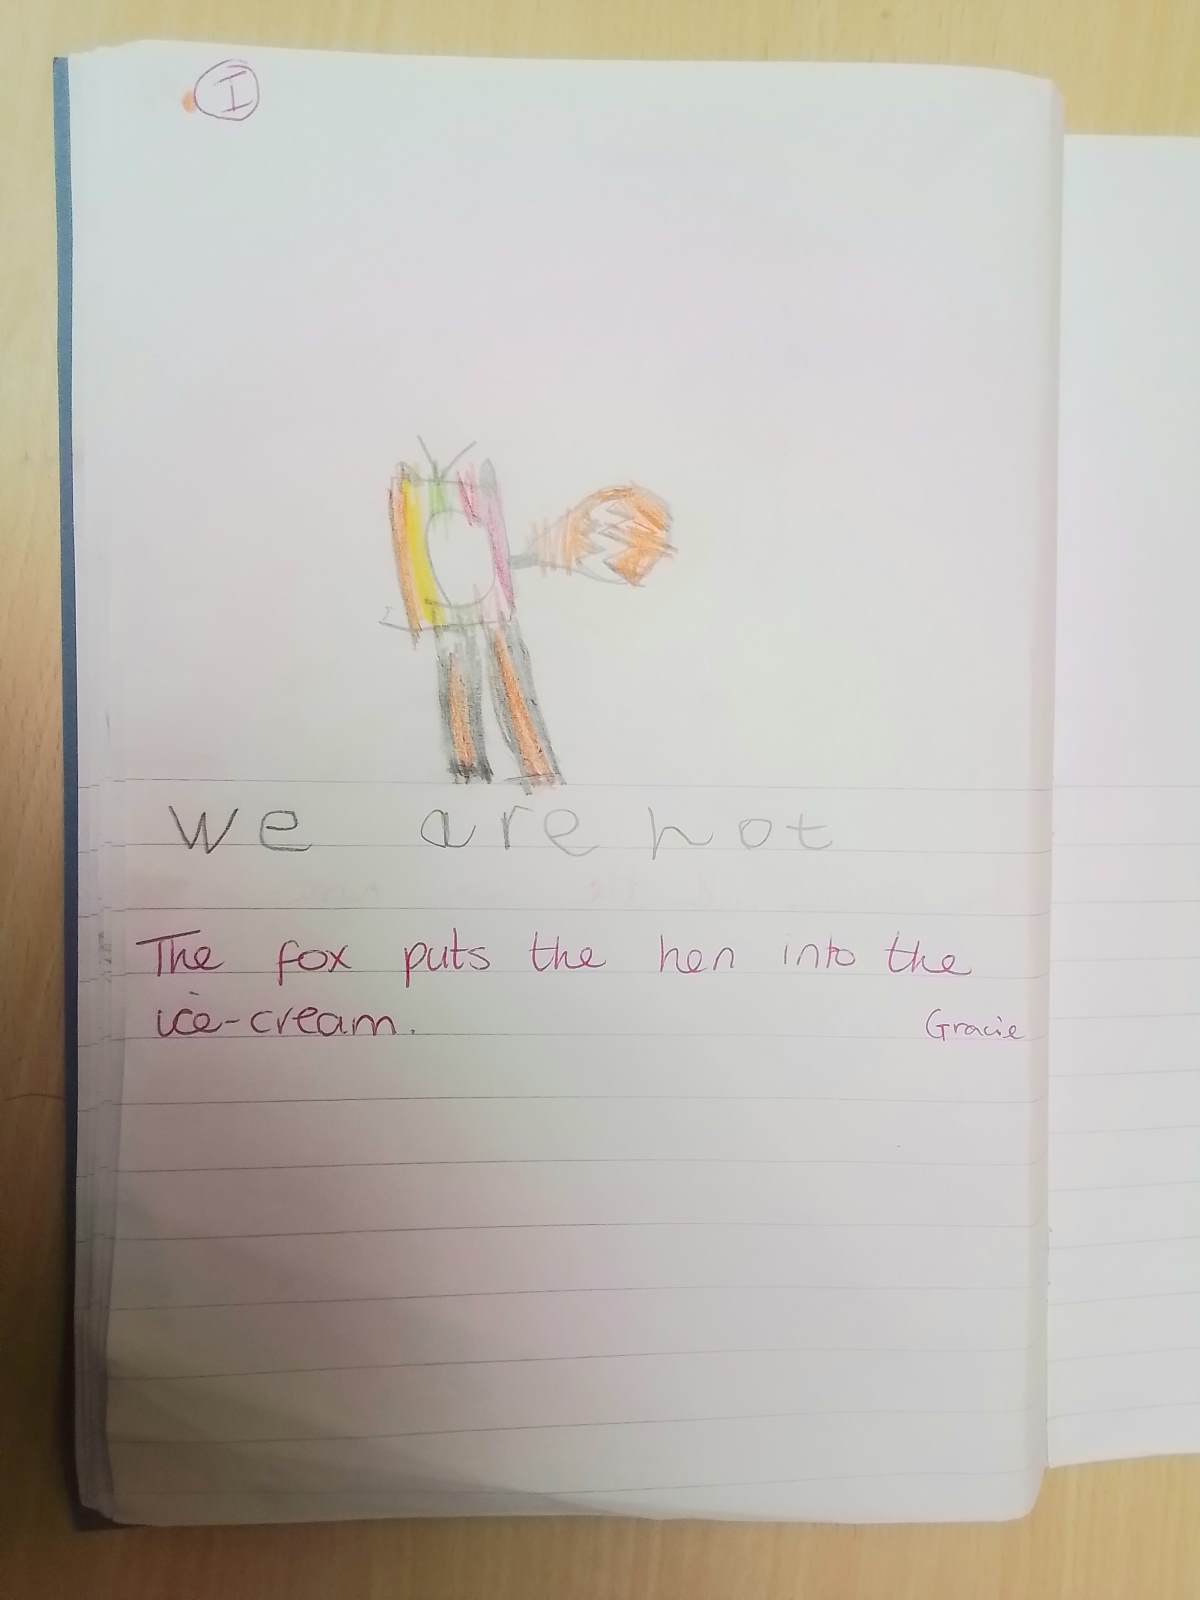 I
we are not
The fox puts the hen into the
ice-cream.
Gracie